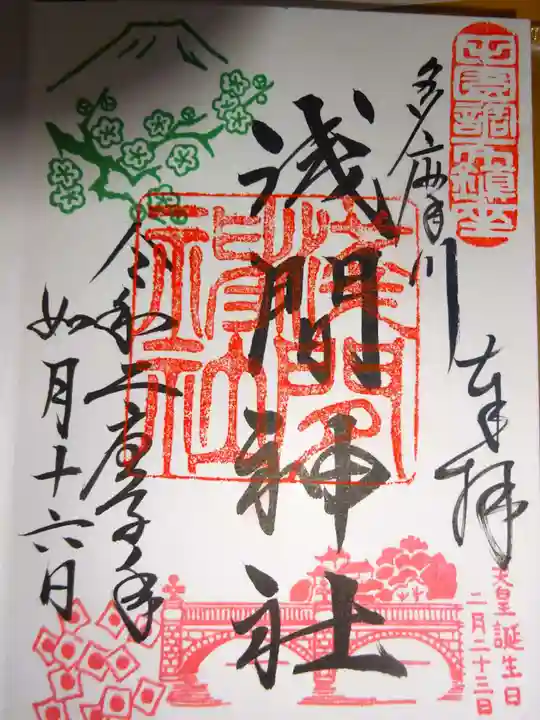 田園調布鎮座
多摩川
奉拝
浅間神社
令和二庚子年
如月十六日
天皇誕生日
二月二十三日